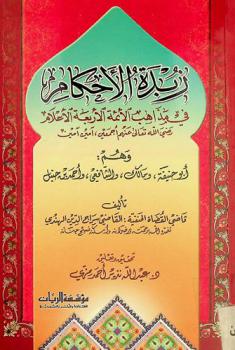 زبدة الأحكام
في مذاهب الأئمة الأربعة الأعلام
رضي الله تعالى عنهم أجمعين، آمين آمين
وهم:
أبو حنيفة، ومالك، والشافعي، وأحمد بن حنبل
تأليف
قاضي القضاة الحنفية: القاضي سراج الدين الهندي
تحقيق وتعليق
د. عبد الله نذير أحمد مزي
مؤسسة الريان